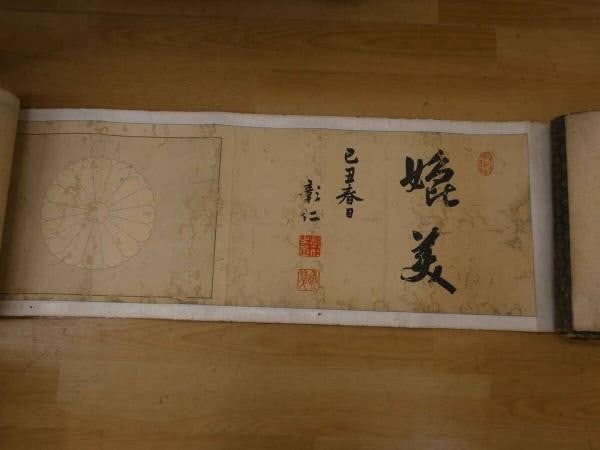 媲美
己丑春日
彰仁